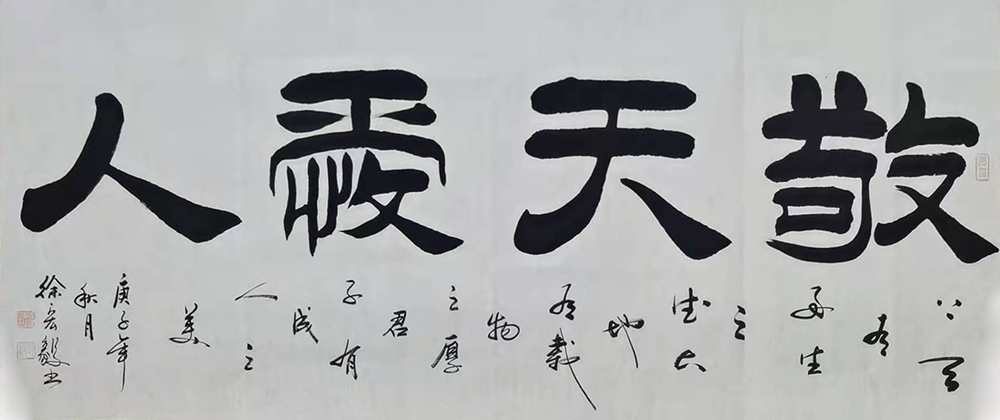 敬天愛人
上天
有
好生
之
德大
地
有載
物
之厚
君
子有
成
人之
美
庚子年
秋月
徐宏毅书